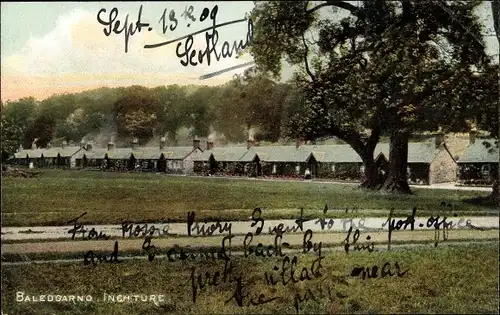 Sept. 13th 09
Scotland
From Rossie Priory I went to the post office
and I came back by this
pretty village near
the
BALEDGARNO, INCHTURE